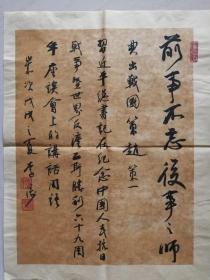 前事不忘後事之師
典出戰國策趙策一
習近平總書記在紀念中國人民抗日
戰爭暨世界反法西斯勝利六十九周
年座談會上的講話用語
歲次戊戌之夏